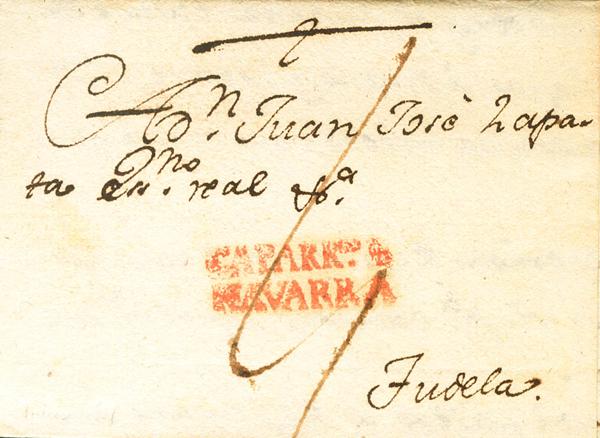 A Dn. Juan José Zapa-
ta Essno. real &a.
CAPARRO.
NAVARRA
Tudela.